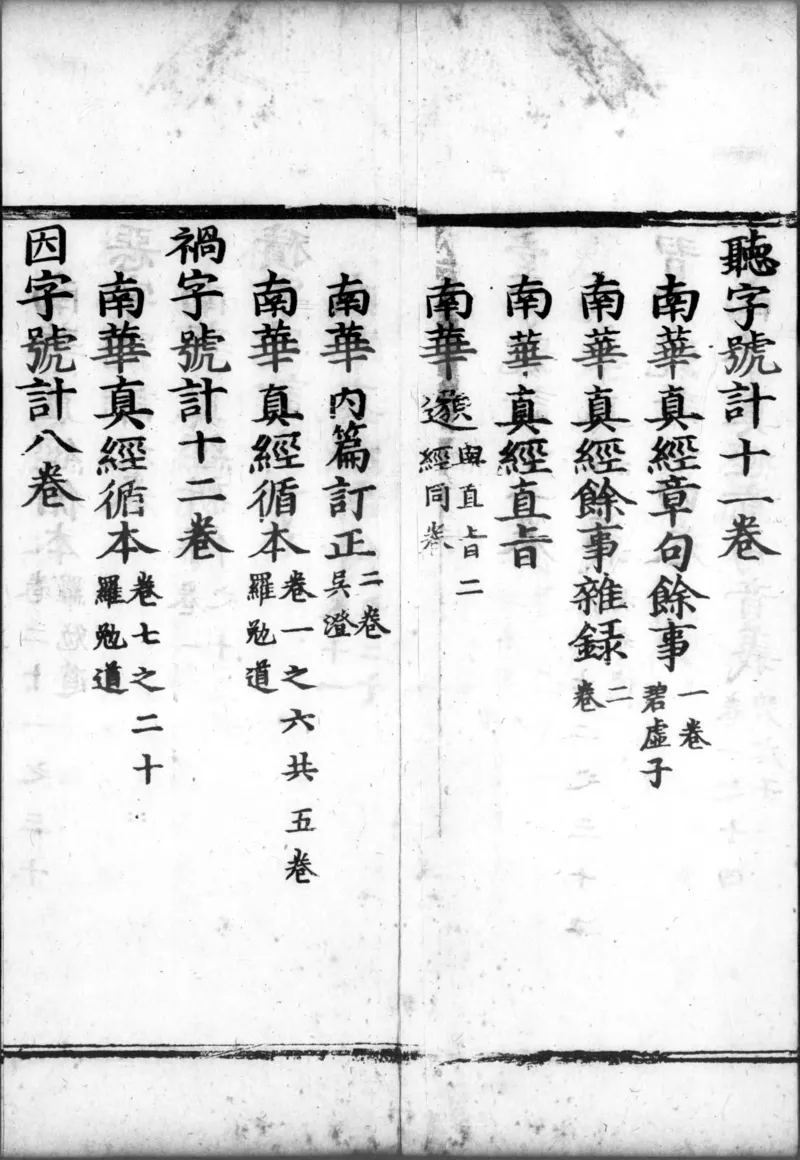 聽字號計十一卷
南華真經章句餘事一卷碧虛子
南華真經餘事雜録二卷
南華真經直旨
南華邈與直旨二經同卷
南華內篇訂正二卷吳澄
南華真經循本卷一之六共五卷羅勉道
禍字號計十二卷
南華真經循本卷七之二十羅勉道
因字號計八卷